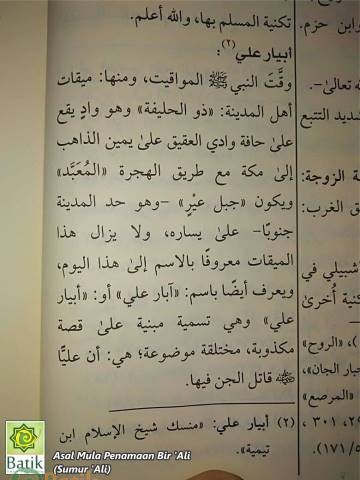 تكنية المسلم بها، والله أعلم.
أبيار علي(٢):
وقَّتَ النبي ﷺ المواقيت، ومنها: ميقات
أهل المدينة: «ذو الحليفة» وهو وادٍ يقع
علىٰ حافة وادي العقيق علىٰ يمين الذاهب
إلىٰ مكة مع طريق الهجرة «المُعَبَّد»
ويكون «جبل عيْر» -وهو حد المدينة
جنوبًا- علىٰ يساره، ولا يزال هذا
الميقات معروفًا بالاسم إلىٰ هذا اليوم،
ويعرف أيضًا باسم: «آبار علي» أو: «أبيار
علي» وهي تسمية مبنية علىٰ قصة
مكذوبة، مختلقة موضوعة؛ هي: أن عليًّا
قاتل الجن فيها.
(٢) أبيار علي: «منسك شيخ الإسلام ابن
تيمية».
وابن حزم.
تعالى-.
شديد التتبع
ة الزوجة:
ق الغرب:
أشبيلي في
كنية أُخرىٰ
«الروح»
«المرصع»
٢٩، ٣٠١،
Batik
Asal Mula Penamaan Bir 'Ali
(Sumur 'Ali)